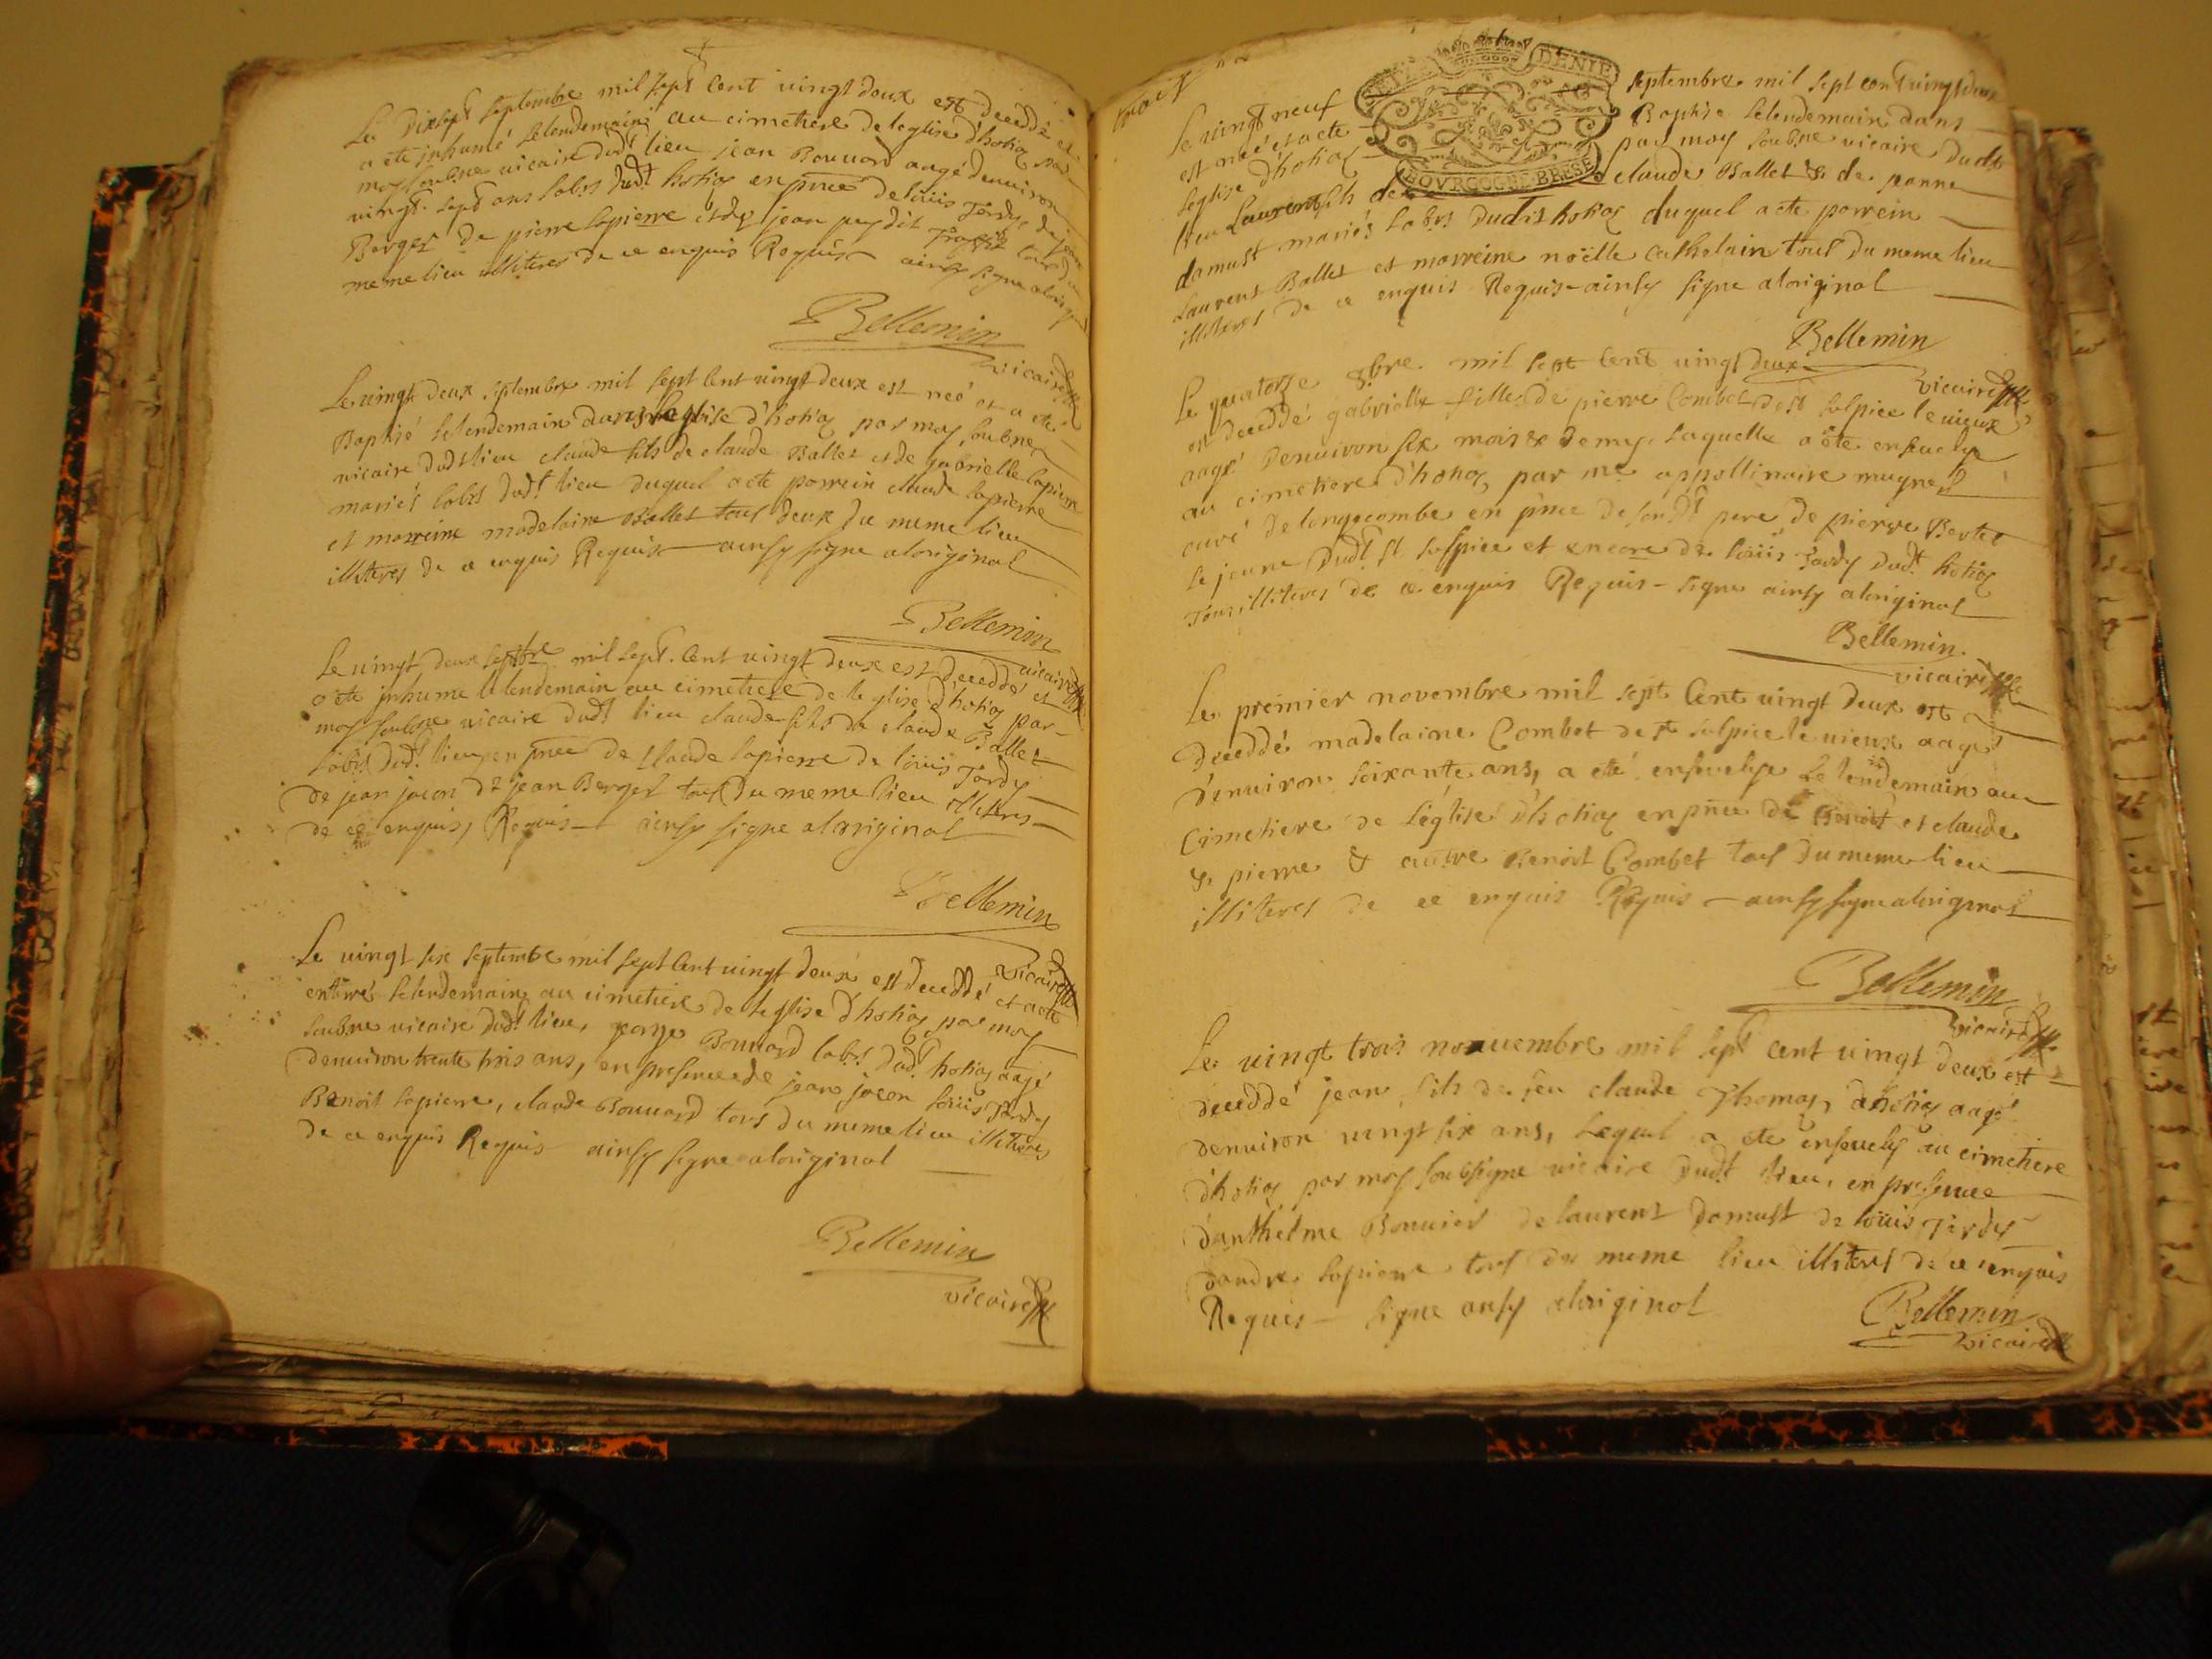 Le dixsept septembre mil sept cent vingt deux est deceddé et
a ete inhumé le lendemain au cimetiere de leglise d'hotiag par
moy soubne vicaire dudt lieu jean Bouuard aagé denuiron
vingt sept ans labrs dudt hotiag en pnce de louis Jardy, de jean
Berger de pierre lapierre et de jean puydit tous du
meme lieu illiteres de ce enquis Requis ainsy signe a loriginal
Bellemin
vicaire
Le vingt deux septembre mil sept cent vingt deux est neé et a ete
Baptisé le lendemain dans leglise d'hotiag par moy soubne
vicaire dudt lieu claude fils de claude Ballet et de gabrielle lapierre
mariés labrs dudt lieu duquel a ete parrein claude lapierre
et marreine madelaine Ballet tous deux du meme lieu
illiteres de ce enquis Requis ainsy signe a loriginal
Bellemin
vicaire
Le vingt deux septbre mil sept cent vingt deux est deceddé et
a ete inhume le lendemain au cimetiere de leglise d'hotiag par
moy soubne vicaire dudt lieu claude fils de claude Ballet
labrs dudt lieu en pnce de claude lapierre de louis Jardy
de jean jacon de jean Berger tous du meme lieu illiteres
de ce enquis, Requis ainsy signe a loriginal
Bellemin
vicaire
Le vingt six septembre mil sept cent vingt deux est deceddé et a ete
enterré le lendemain au cimetiere de leglise d'hotiag par moy
soubne vicaire dudt lieu, george Bouuard labrs dudt hotiag aagé
denuiron trente trois ans, en presence de jean jacon louis Jardy
Benoit lapierre, claude Bouuard tous du meme lieu illiteres
de ce enquis Requis ainsy signe a loriginal
Bellemin
vicaire
DENIE
BOVRGOGNE BRESSE
Le vingt neuf septembre mil sept cent vingt deux
est neé et a ete Baptise le lendemain dans
leglise d'hotiag par moy soubne vicaire dudt
lieu Laurent fils de claude Ballet & de jeanne
damust mariés labrs dudit hotiag duquel a ete parrein
Laurent Ballet et marreine noëlle cathelain tous du meme lieu
illiteres de ce enquis Requis ainsy signe a loriginal
Bellemin
vicaire
Le quatorze 8bre mil sept cent vingt deux
est deceddé gabrielle fille de pierre Combet de st sulpice le vieux
aagé denuiron six mois & demy laquelle a ete enseuelye
au cimetiere d'hotiag par me appollinaire mugnes
curé de longecombe en pnce de sondt pere de pierre Bertet
le jeune dudt st sulpice et encore de loüis Jardy dudt hotiag
Tous illiteres de ce enquis Requis signe ainsy a loriginal
Bellemin
vicaire
Le premier novembre mil sept cent vingt deux est
deceddé madelaine Combet de st sulpice le vieux aagé
denuiron soixante ans, a eté enseuelye le lendemain au
cimetiere de l'église d'hotiag en pnce de Benoit et claude
& pierre & autre Benoit Combet tous du meme lieu
illiteres de ce enquis Requis ainsy signe a loriginal
Bellemin
vicaire
Le vingt trois nouuembre mil sept cent vingt deux est
deceddé jean fils de feu claude Thomas, d'hotiag aagé
denuiron vingt six ans, Lequel a ete enseuely au cimetiere
d'hotiag par moy soubsigne vicaire dudt lieu, en presence
d'anthelme Bouuier de laurent damust de loüis Jardy
dandre lapierre tous du meme lieu illiteres de ce enquis
Requis signe ainsy a loriginal
Bellemin
vicaire